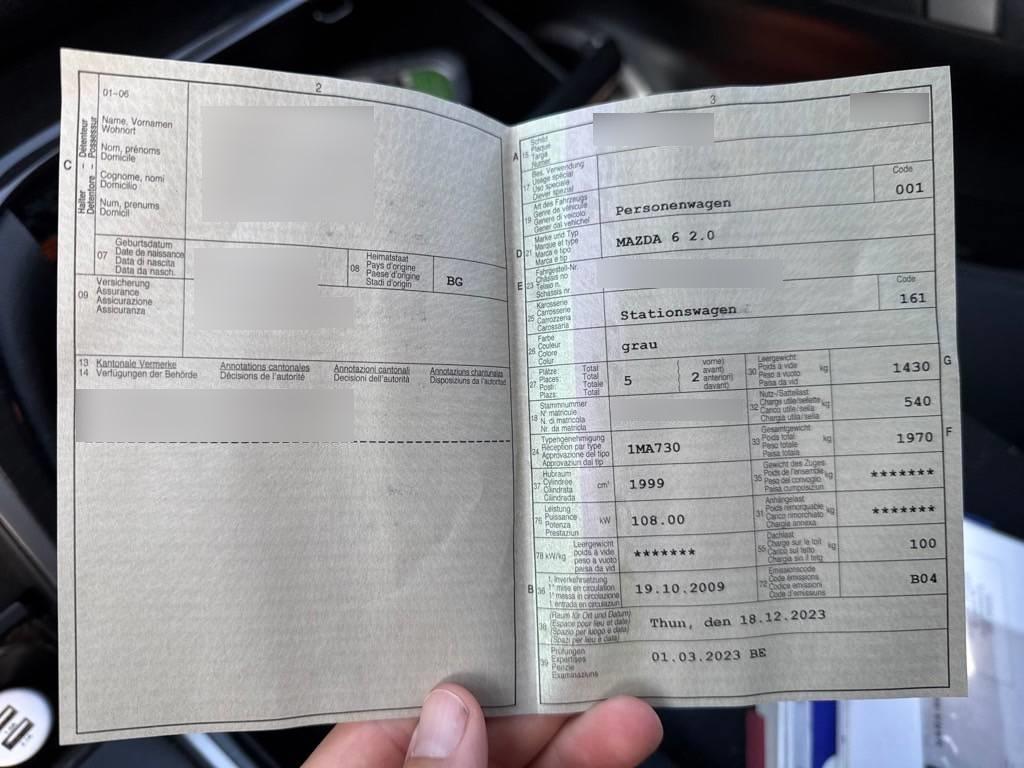 2
01-06
Name, Vornamen
Wohnort
Nom, prénoms
Domicile
Cognome, nomi
Domicilio
Num, prenums
Domicil
C
Halter – Détenteur
Detentore – Possessur
07
Geburtsdatum
Date de naissance
Data di nascita
Data da nasch.
08
Heimatstaat
Pays d'origine
Paese d'origine
Stadi d'origin
BG
09
Versicherung
Assurance
Assicurazione
Assicuranza
13 Kantonale Vermerke Annotations cantonales Annotazioni cantonali Annotaziuns chantunalas
14 Verfügungen der Behörde Décisions de l'autorité Decisioni dell'autorità Disposiziuns da l'autoritad
3
A
15
Schild
Plaque
Targa
Numer
17
Bes. Verwendung
Usage spécial
Uso speciale
Diever spezial
19
Art des Fahrzeugs
Genre de véhicule
Genere di veicolo
Gener dal vehichel
Personenwagen
Code
001
D
21
Marke und Typ
Marque et type
Marca e tipo
Marca e tip
MAZDA 6 2.0
E
23
Fahrgestell-Nr.
Châssis no
Telaio n.
Schassis nr.
25
Karosserie
Carrosserie
Carrozzeria
Carossaria
Stationswagen
Code
161
26
Farbe
Couleur
Colore
Colur
grau
27
Plätze: Total
Places: Total
Posti: Totale
Plazs: Total
5
2
vorne)
avant)
anteriori)
davant)
30
Leergewicht
Poids à vide
Peso a vuoto
Paisa da vid
kg
1430
G
18
Stammnummer
N° matricule
N. di matricola
Nr. da matricla
32
Nutz-/Sattellast
Charge utile/sellette
Carico utile/sella
Chargia utila/sella
kg
540
24
Typengenehmigung
Réception par type
Approvazione del tipo
Approvaziun dal tip
1MA730
33
Gesamtgewicht
Poids total
Peso totale
Paisa totala
kg
1970
F
37
Hubraum
Cylindrée
Cilindrata
Cilindrada
cm³
1999
35
Gewicht des Zuges
Poids de l'ensemble
Peso del convoglio
Paisa cumposiziun
kg
*******
76
Leistung
Puissance
Potenza
Prestaziun
kW
108.00
31
Anhängelast
Poids remorquable
Carico rimorchiato
Chargia annexa
kg
*******
78 kW/kg
Leergewicht
poids à vide
peso a vuoto
paisa da vid
*******
55
Dachlast
Charge sur le toit
Carico sul tetto
Chargia sin il tetg
kg
100
B
36
1. Inverkehrsetzung
1re mise en circulation
1a messa in circolazione
1. entrada en circulaziun
19.10.2009
72
Emissionscode
Code émissions
Codice emissioni
Code d'emissiuns
B04
38
(Raum für Ort und Datum)
(Espace pour lieu et date)
(Spazio per luogo e data)
(Spazi per lieu e data)
Thun, den 18.12.2023
39
Prüfungen
Expertises
Perizie
Examinaziuns
01.03.2023 BE